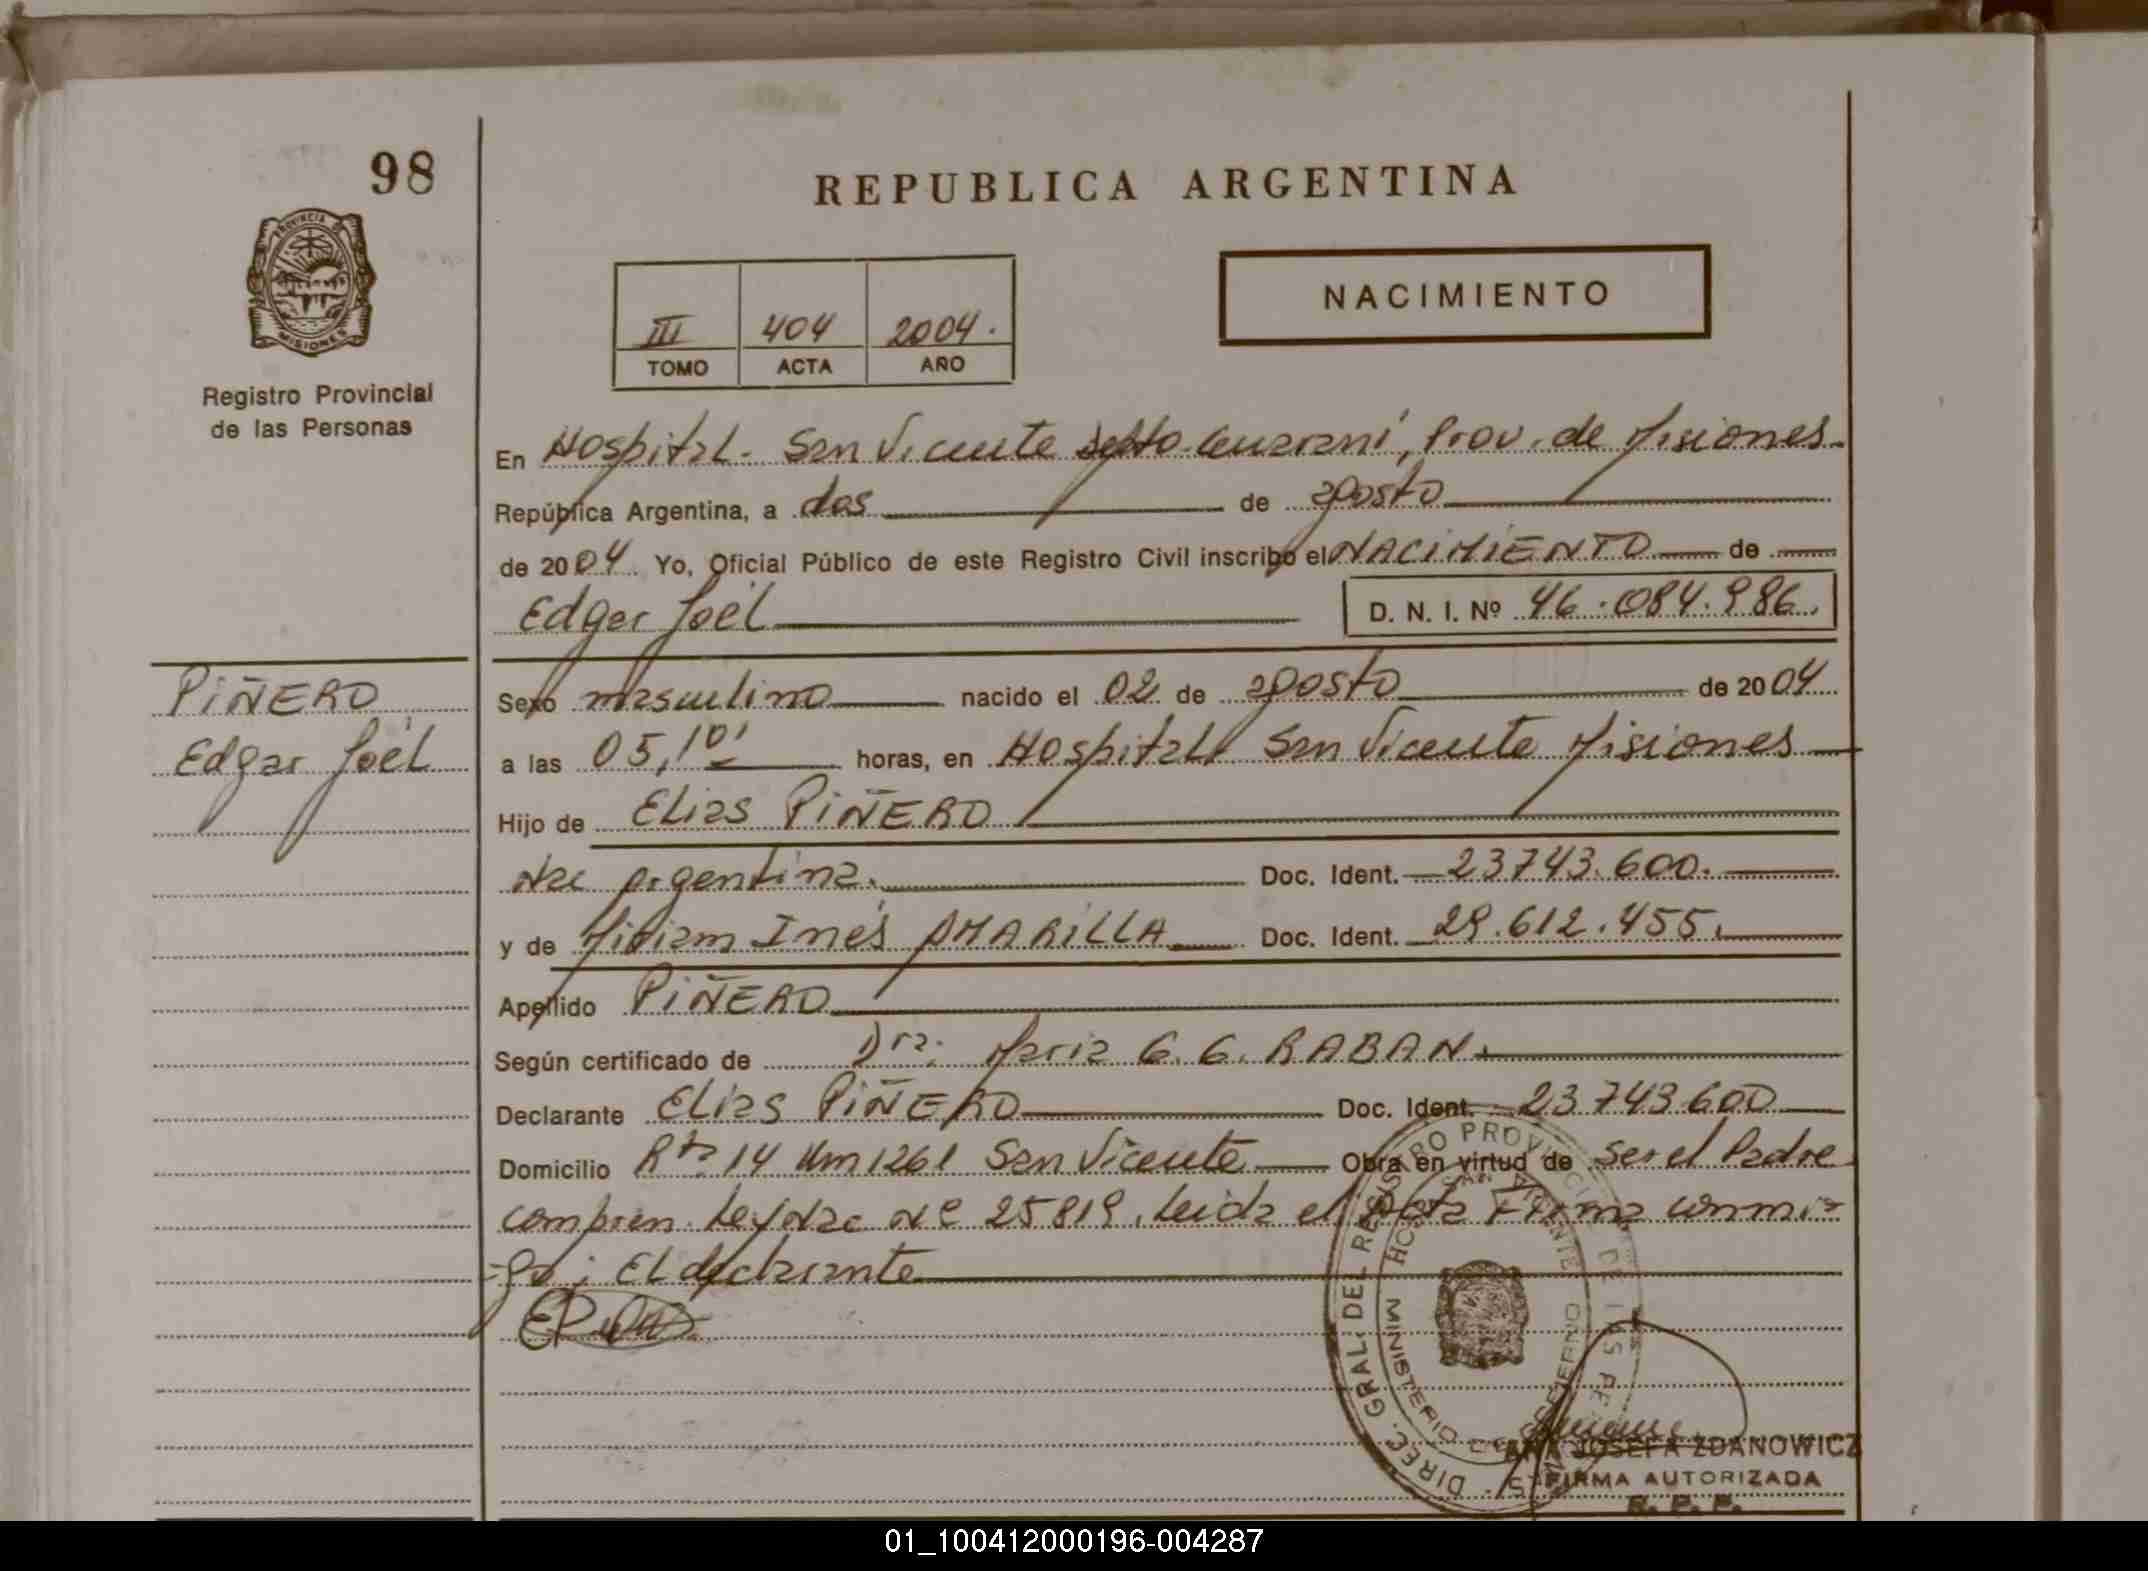 98
REPUBLICA ARGENTINA
PROVINCIA
MISIONES
Registro Provincial
de las Personas
III 404 2004.
TOMO ACTA AÑO
NACIMIENTO
En Hospital - San Vicente Dpto. Guaraní, Prov. de Misiones
República Argentina, a dos de agosto
de 2004 Yo, Oficial Público de este Registro Civil inscribo el NACIMIENTO de
Edgar Joel D. N. I. Nº 46.084.986.
PIÑERO
Edgar Joel
Sexo masculino nacido el 02 de agosto de 2004
a las 05,10' horas, en Hospital San Vicente Misiones
Hijo de Elias PIÑERO
Nac Argentina. Doc. Ident. 23743.600.
y de Miriam Inés AMARILLA Doc. Ident. 29.612.455.
Apellido PIÑERO
Según certificado de Dra. Maria G. G. RABAN.
Declarante Elias PIÑERO Doc. Ident. 23743600
Domicilio Rta 14 Km 1261 San Vicente Obra en virtud de ser el Padre
compren. Ley Nac Nº 25819. Leida el Acta Firma conmi-
-go; El declarante
DIREC. GRAL. DEL REGISTRO PROVINCIAL DE LAS PE
HOSP. SAN VICENTE
MINISTERIO DE GOBIERNO
ANA JOSEFA ZDANOWICZ
FIRMA AUTORIZADA
R. P. P.
01_100412000196-004287